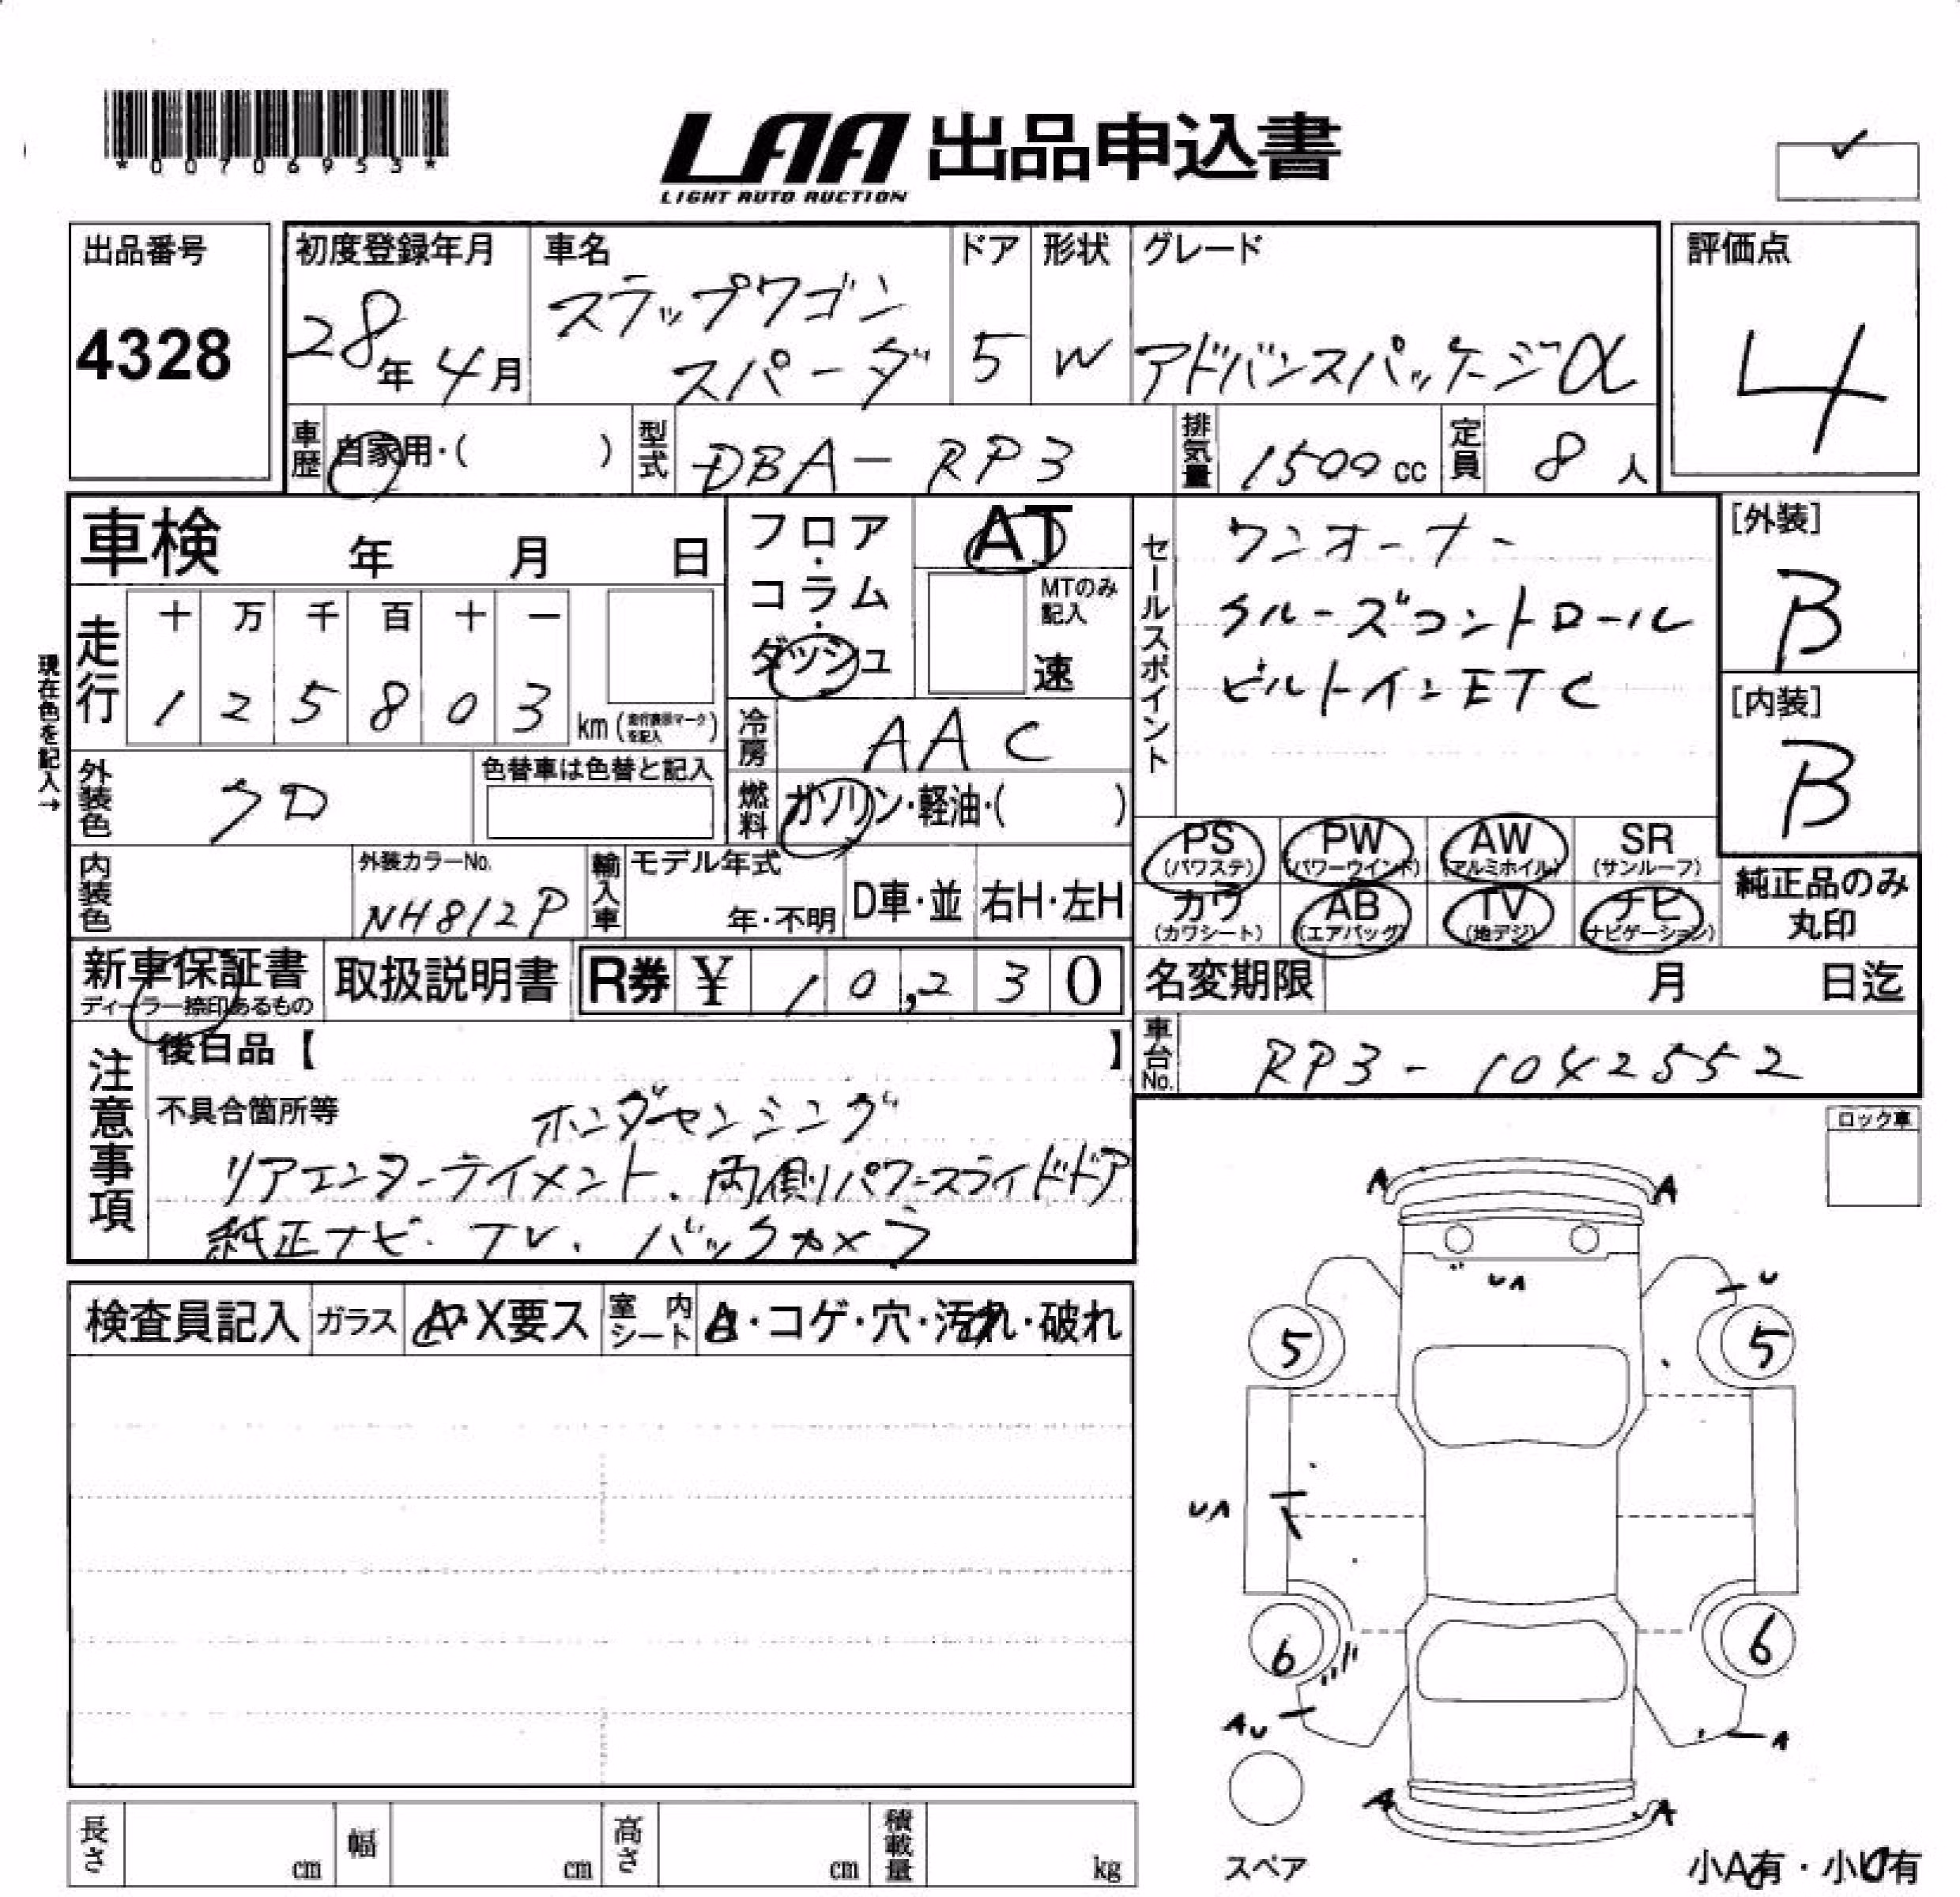 *00706953*
LAA 出品申込書
LIGHT AUTO AUCTION
出品番号
4328
初度登録年月
28年4月
車名
ステップワゴン
スパーダ
ドア
5
形状
W
グレード
アドバンスパッケージα
評価点
4
車歴 自家用・( )
型式 DBA-RP3
排気量 1500cc
定員 8人
車検 年 月 日
フロア・コラム・ダッシュ
AT
MTのみ記入
速
セールスポイント
ワンオーナー
クルーズコントロール
ビルトインETC
[外装]
B
[内装]
B
現在色を記入→
走行 十 万 千 百 十 一
1 2 5 8 0 3 km (走行表示マークを記入)
冷房 AAC
外装色 クロ
色替車は色替と記入
燃料 ガソリン・軽油・( )
PS (パワステ)
PW (パワーウインド)
AW (アルミホイル)
SR (サンルーフ)
カワ (カワシート)
AB (エアバッグ)
TV (地デジ)
ナビ (ナビゲーション)
純正品のみ
丸印
内装色
外装カラーNo.
NH812P
輸入車 モデル年式
年・不明
D車・並
右H・左H
新車保証書
ディーラー捺印あるもの
取扱説明書
R券 ¥ 10,230
名変期限 月 日迄
車台No. RP3-1042552
注意事項
後日品【 】
不具合箇所等 ホンダセンシング
リアエンターテイメント、両側パワースライドドア
純正ナビ・TV、バックカメラ
ロック車
検査員記入 ガラス A・X要ス 室内シート ・コゲ・穴・汚れ・破れ
A A
UA
U
5 5
UA
6 6
AU
A
A A
スペア
小A有・小U有
長さ cm
幅 cm
高さ cm
積載量 kg